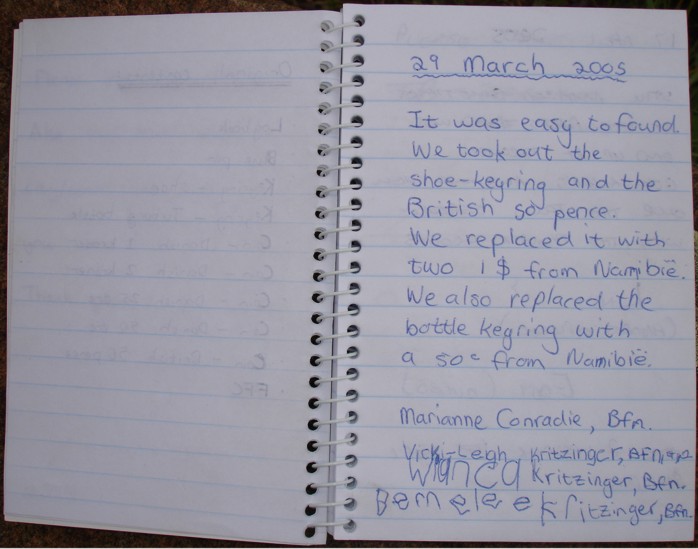 29 March 2005
It was easy to found.
We took out the
shoe-keyring and the
British 50 pence.
We replaced it with
two 1$ from Namibië.
We also replaced the
bottle keyring with
a 50c from Namibië.
Marianne Conradie, Bfn.
Vicki-Leigh Kritzinger, Bfn,
Wianca Kritzinger, Bfn.
Kritzinger, Bfn.